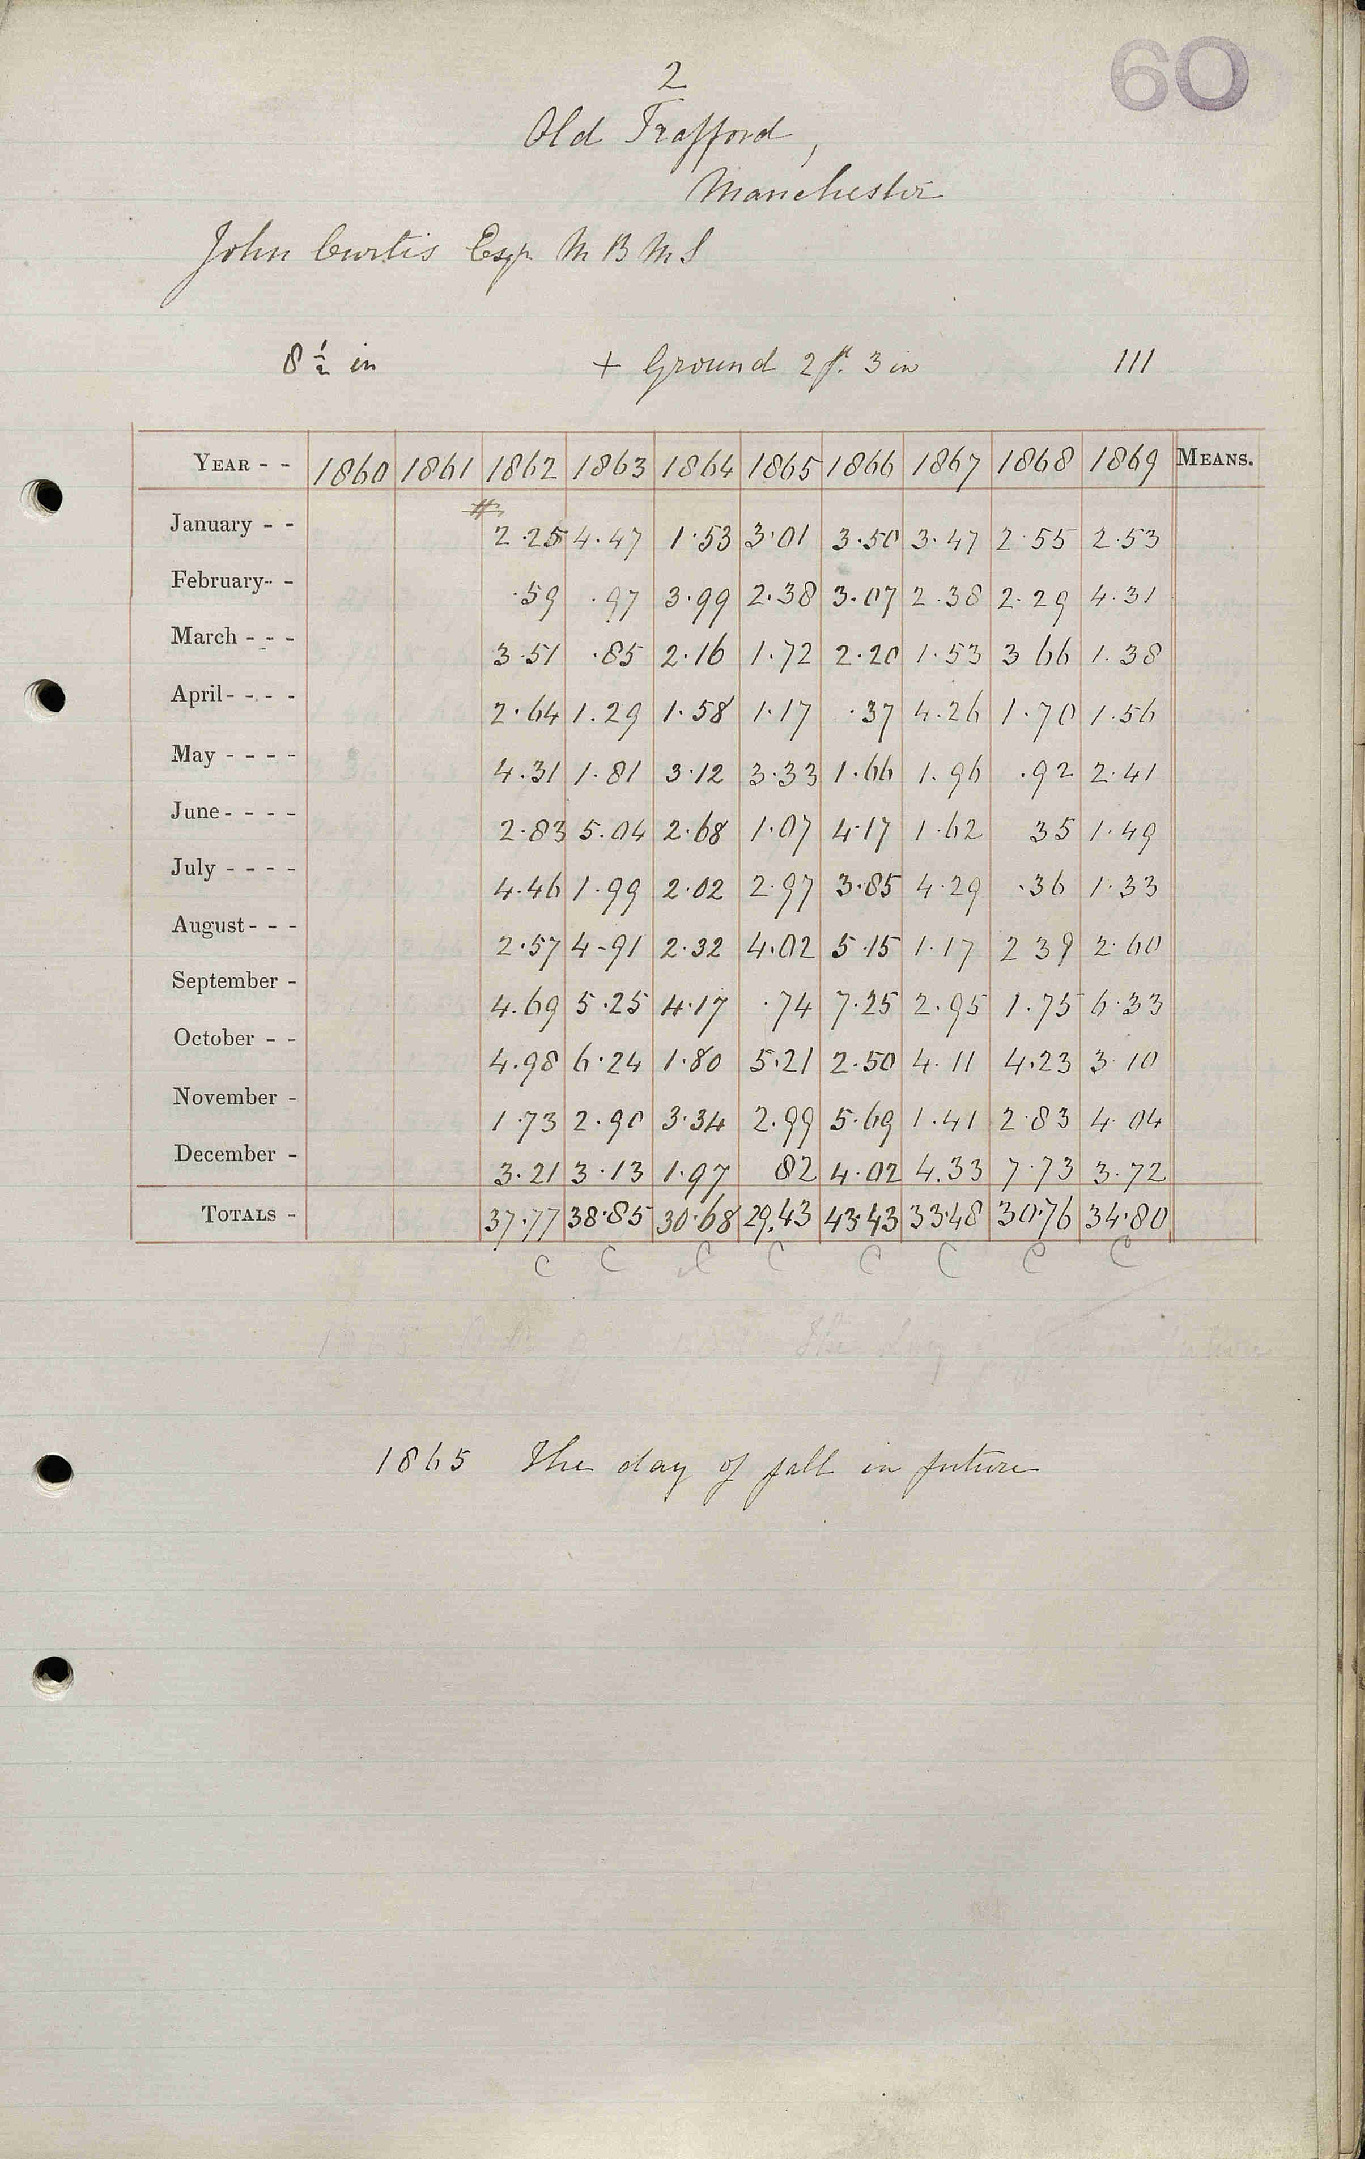 60
2
Old Trafford,
Manchester
John Curtis Esqr M B M S
8 1/2 in + Ground 2 ft. 3 in 111
YEAR - - 1860 1861 1862 1863 1864 1865 1866 1867 1868 1869 MEANS.
#
January - - 2.25 4.47 1.53 3.01 3.50 3.47 2.55 2.53
February - - .59 .97 3.99 2.38 3.07 2.38 2.29 4.31
March - - - 3.51 .85 2.16 1.72 2.20 1.53 3 66 1.38
April - - - - 2.64 1.29 1.58 1.17 .37 4.26 1.70 1.56
May - - - - 4.31 1.81 3.12 3.33 1.66 1.96 .92 2.41
June - - - - 2.83 5.04 2.68 1.07 4.17 1.62 35 1.49
July - - - - 4.46 1.99 2.02 2.97 3.85 4.29 .36 1.33
August - - - 2.57 4.91 2.32 4.02 5.15 1.17 2 39 2.60
September - 4.69 5.25 4.17 .74 7.25 2.95 1.75 6.33
October - - 4.98 6.24 1.80 5.21 2.50 4.11 4.23 3.10
November - 1.73 2.90 3.34 2.99 5.69 1.41 2.83 4.04
December - 3.21 3.13 1.97 82 4.02 4.33 7.73 3.72
TOTALS - 37.77 38.85 30.68 29.43 43.43 33.48 30.76 34.80
C C C C C C C C
1865 The day of fall in future